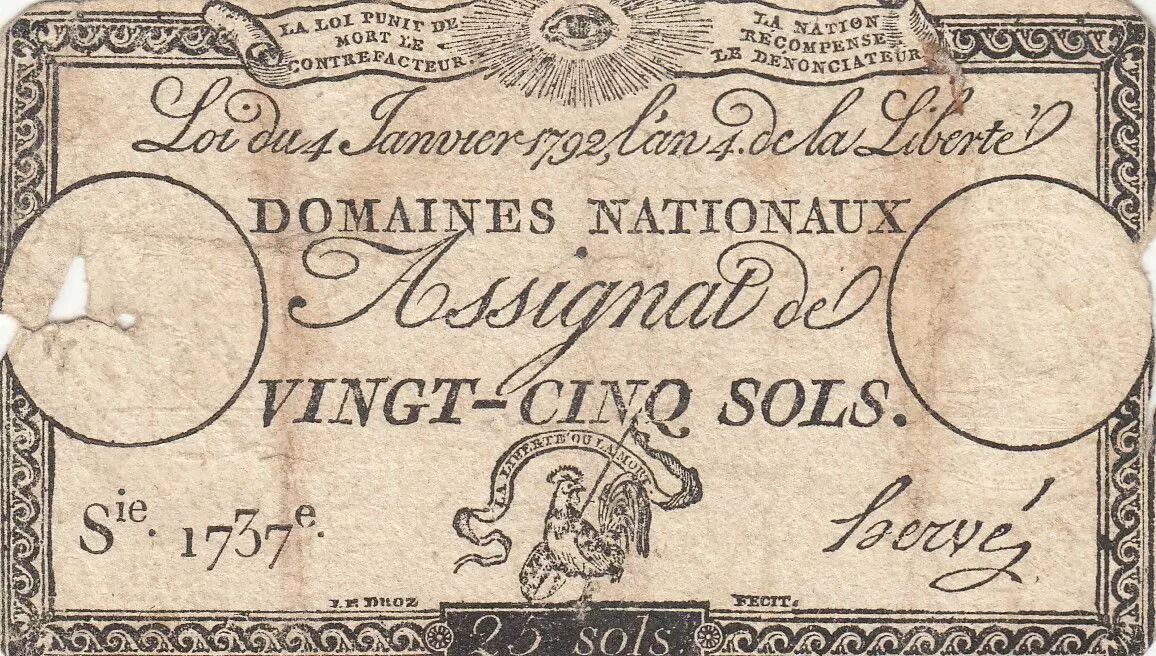 LA LOI PUNIT DE
MORT LE
CONTREFACTEUR.
LA NATION
RECOMPENSE
LE DENONCIATEUR
Loi du 4 Janvier 1792, l'an 4. de la Liberté
DOMAINES NATIONAUX
Assignat de
VINGT-CINQ SOLS.
LA LIBERTÉ OU LA MORT
Sie. 1737e.
hervé
J.P. DROZ FECIT.
25 sols.